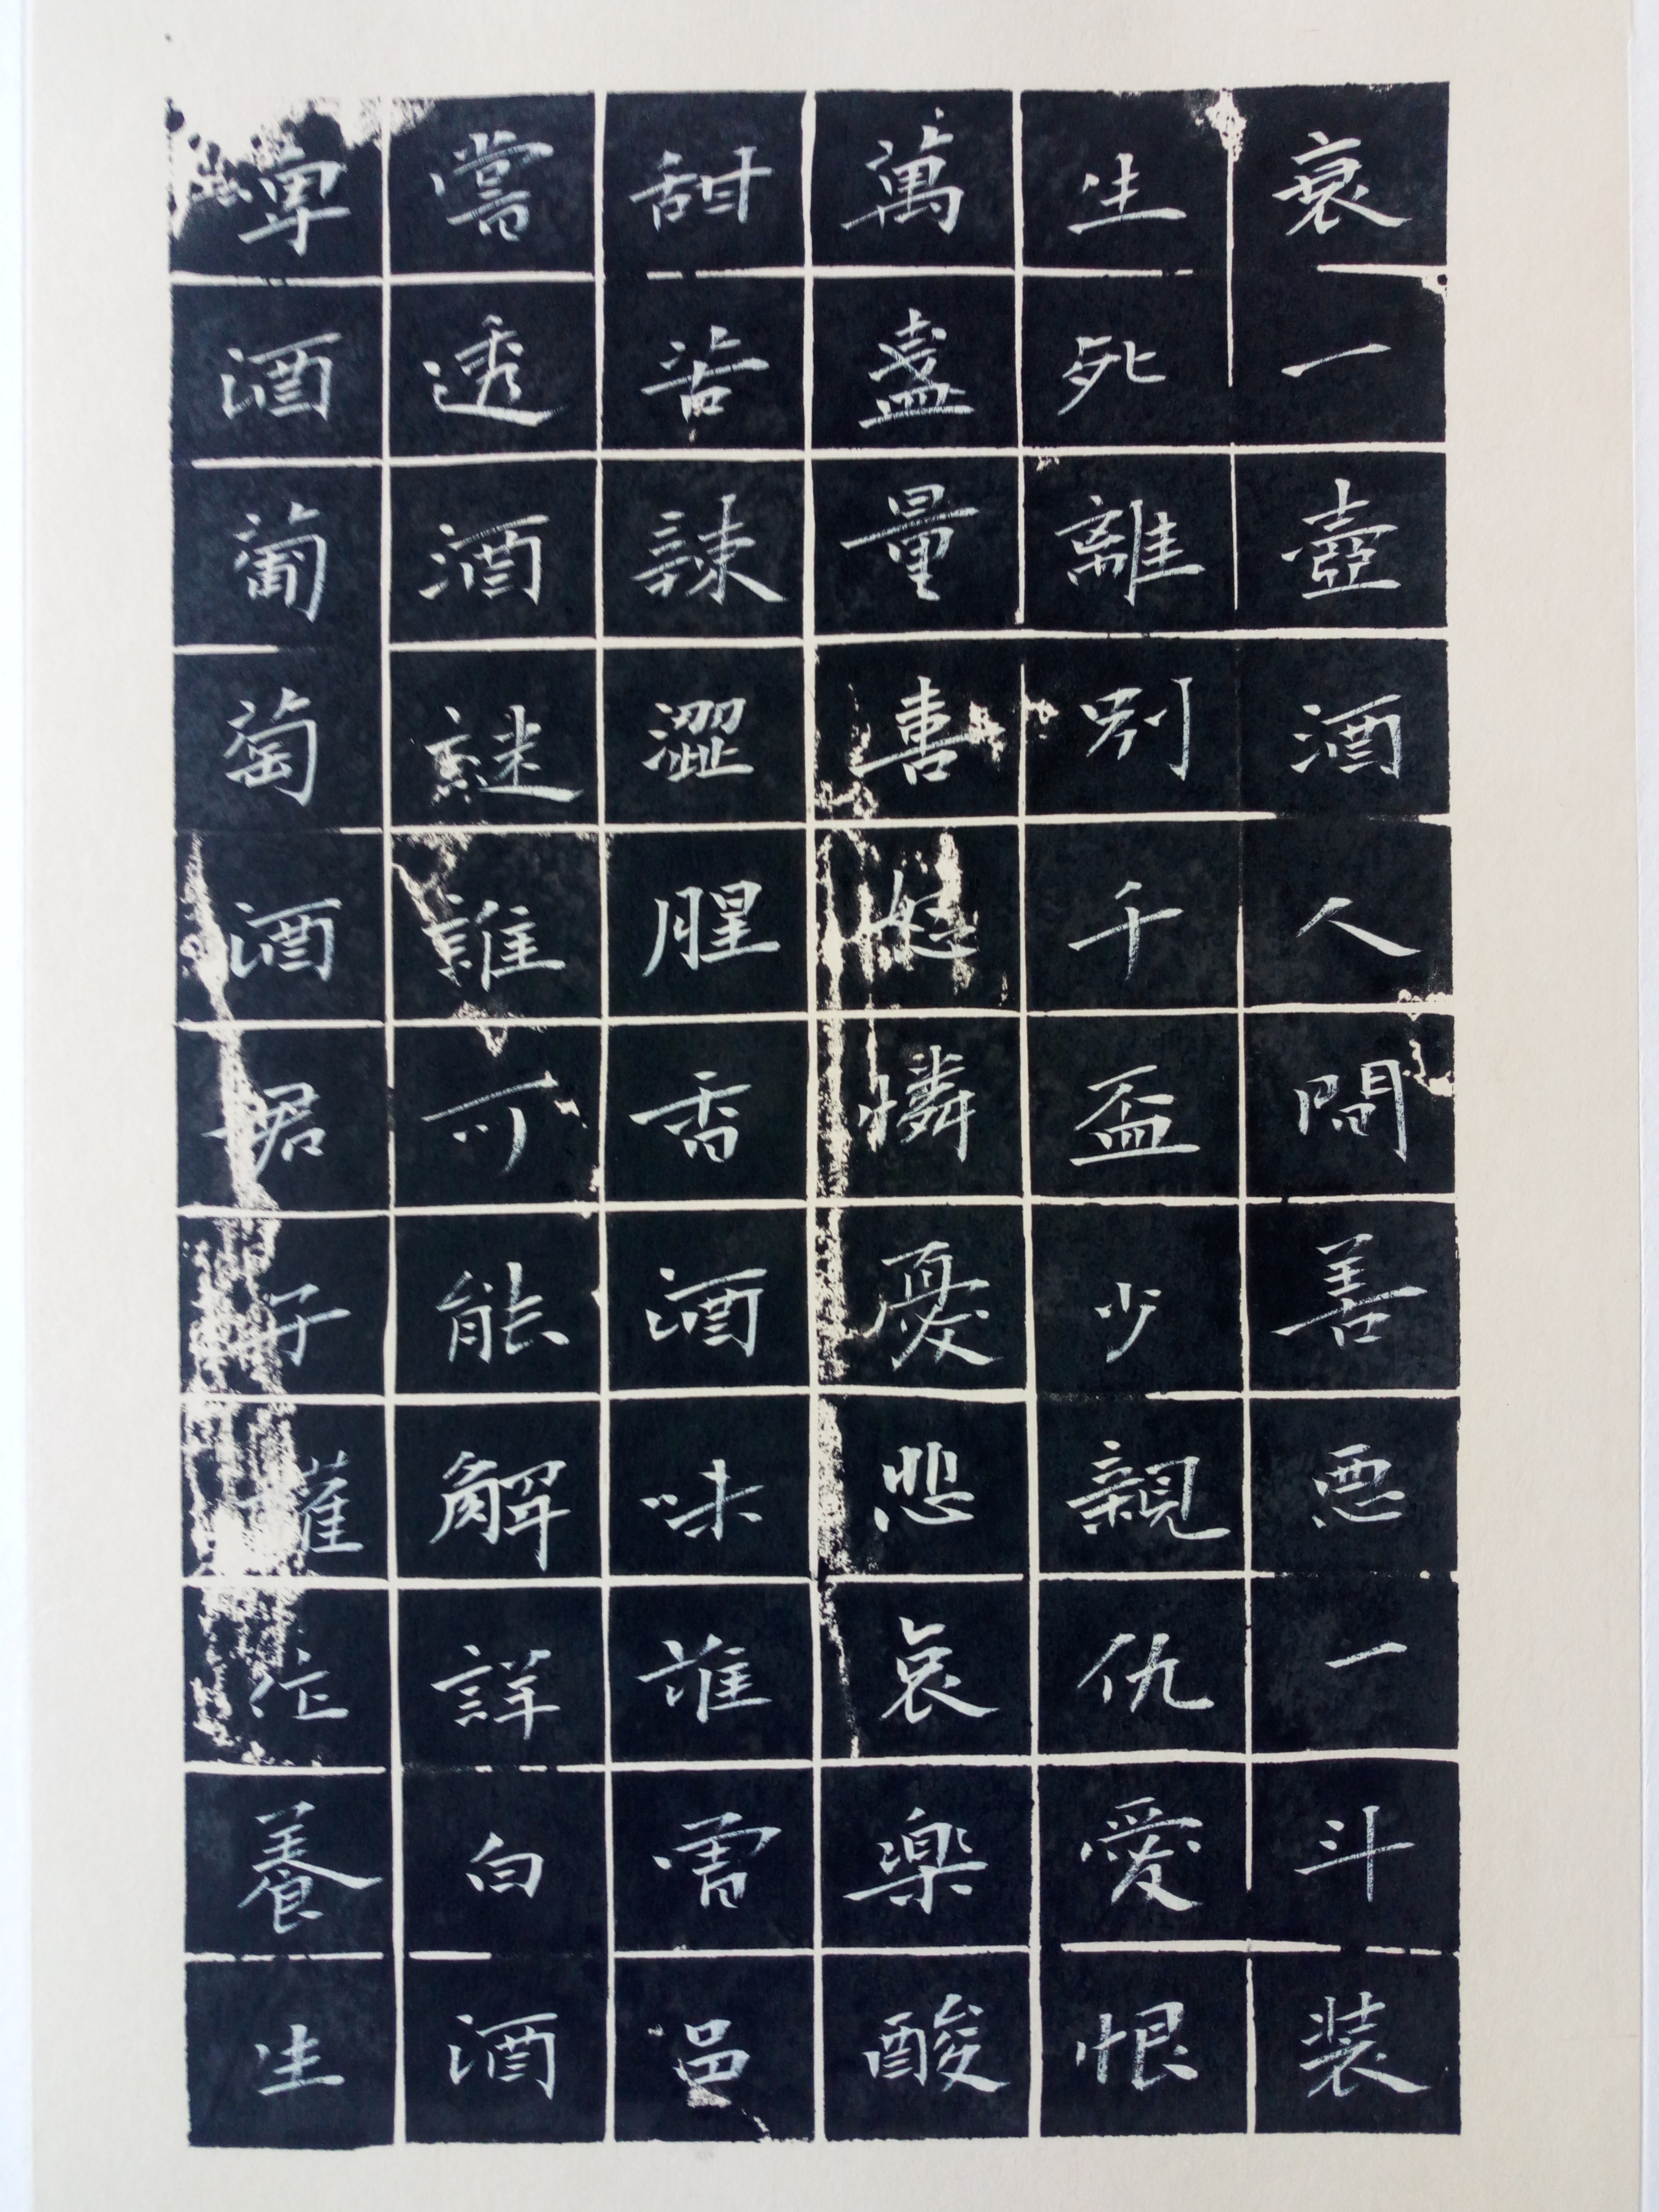 衰一壺酒人間善惡一斗装
生死離別千盃少親仇愛恨
萬盞量喜怒憐憂悲哀樂酸
甜苦辣澀腥香酒味誰邑
嘗透酒謎誰可能解詳白酒
酒葡萄酒君子養生